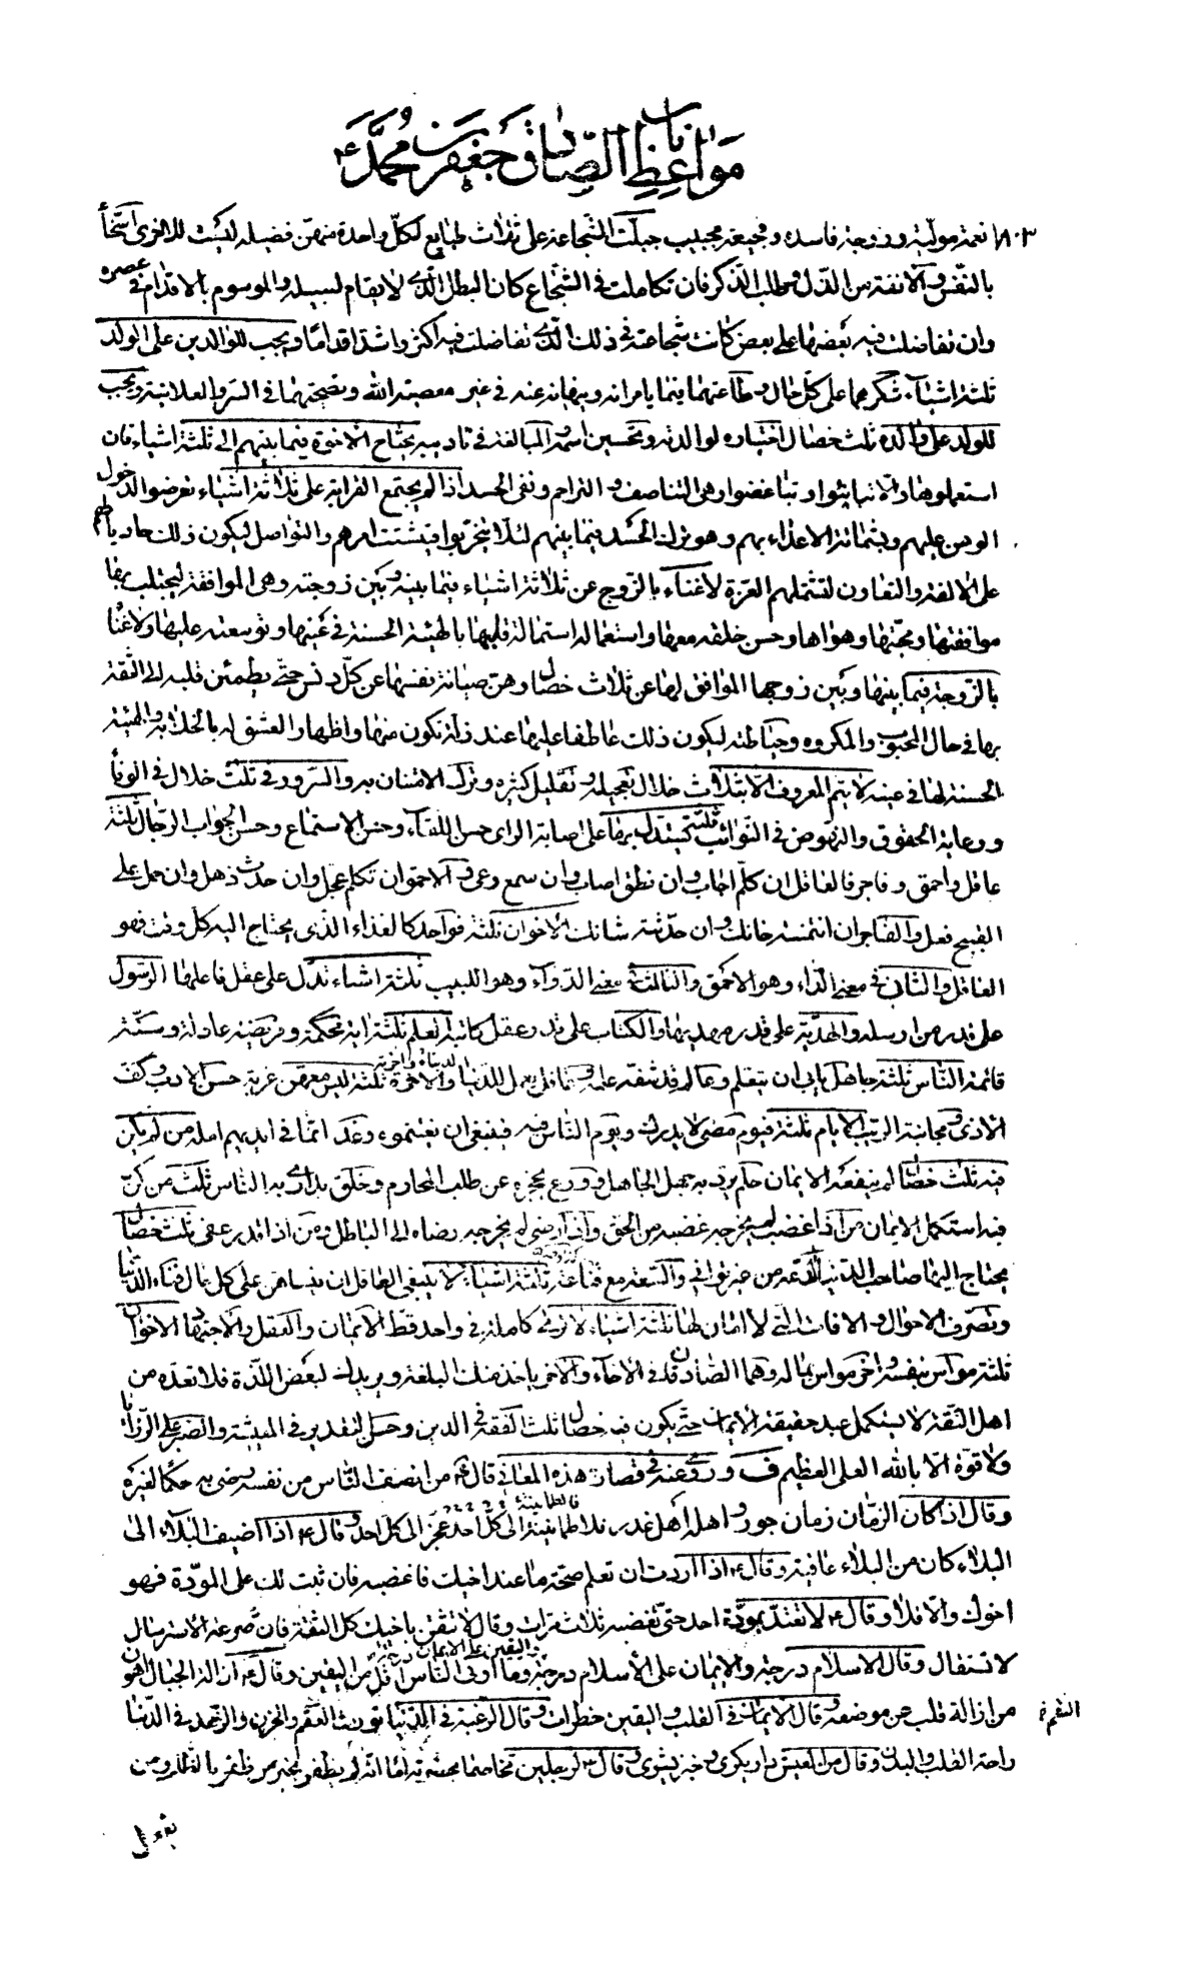 باب
مواعظ الصادق جعفر بن محمد ع
١٨٠٣ نعمة مولية وزوجة فاسدة وفجيعة بحبيب جبلت الشجاعة على ثلاث طبايع لكل واحدة منهن فضيلة ليست للاخرى السخاء
بالنفس والانفة من الذل وطلب الذكر فان تكاملت في الشجاع كان البطل الذي لا يقام لسبيله والموسوم بالاقدام في عصره
وان تفاضلت فيه بعضها على بعض كانت شجاعته في ذلك الذي تفاضلت فيه اكثر واشد اقداما ويجب للوالدين على الولد
ثلثة اشياء شكرهما على كل حال وطاعتهما فيما يامرانه وينهيانه عنه في غير معصية الله ونصيحتهما في السر والعلانية ويجب
للولد على والده ثلث خصال اختياره لوالدته وتحسين اسمه والمبالغة في تاديبه يحتاج الاخوة فيما بينهم الى ثلثة اشياء فان
استعملوها والا تباينوا وتباغضوا وهي التناصف والتراحم ونفي الحسد اذا لم يجتمع القرابة على ثلاثة اشياء تعرضوا لدخول
الوهن عليهم وشماتة الاعداء بهم وهو ترك الحسد فيما بينهم لئلا يتحزبوا فيتشتت امرهم والتواصل ليكون ذلك حاديا لهم
على الالفة والتعاون لتشملهم العزة لا غناء بالزوج عن ثلاثة اشياء فيما بينه وبين زوجته وهي الموافقة ليجتلب بها
موافقتها ومحبتها وهواها وحسن خلقه معها واستعماله استمالة قلبها بالهيئة الحسنة في عينها وتوسعته عليها ولا غناء
بالزوجة فيما بينها وبين زوجها الموافق لها عن ثلاث خصال وهن صيانة نفسها عن كل دنس حتى يطمئن قلبه الى الثقة
بها في حال المحبوب والمكروه وحياطته ليكون ذلك عاطفا عليها عند زلة تكون منها واظهار العشق له بالخلابة والهيئة
الحسنة لها في عينه لا يتم المعروف الا بثلاث خلال تعجيله وتقليل كثيره وترك الامتنان به والسرور في ثلث خلال في الوفاء
ورعاية الحقوق والنهوض في النوائب ثلثة يستدل بها على اصابة الراى حسن اللقاء وحسن الاستماع وحسن الجواب الرجال ثلثة
عاقل واحمق وفاجر فالعاقل ان كلم اجاب وان نطق اصاب وان سمع وعى والاحمق ان تكلم عجل وان حدث ذهل وان حمل على
القبيح فعل والفاجر ان ائتمنته خانك وان حدثته شانك الاخوان ثلثة فواحد كالغذاء الذي يحتاج اليه كل وقت فهو
العاقل والثاني في معنى الداء وهو الاحمق والثالث في معنى الدواء وهو اللبيب ثلثة اشياء تدل على عقل فاعلها الرسول
على قدر من ارسله والهدية على قدر مهديها والكتاب على قدر عقل كاتبه العلم ثلثة اية محكمة وفريضة عادلة وسنة
قائمة الناس ثلثة جاهل يابى ان يتعلم وعالم قد شفه علمه وعاقل يعمل للدنيا والاخرة لدنياه واخرته ثلثة ليس معهن غربة حسن الادب وكف
الاذى ومجانبة الريب الايام ثلثة فيوم مضى لا يدرك ويوم الناس فيه فينبغي ان يغتنموه وغد انما في ايديهم امله من لم يكن
فيه ثلث خصال لم ينفعه الايمان حلم يرد به جهل الجاهل وورع يحجزه عن طلب المحارم وخلق يداري به الناس ثلث من كن
فيه استكمل الايمان من اذا غضب لم يخرجه غضبه من الحق واذا رضي لم يخرجه رضاه الى الباطل ومن اذا قدر عفى ثلث خصال
يحتاج اليها صاحب الدنيا الدعة من غير توانى والسعة مع قناعة ثلثة اشياء لا ينبغي للعاقل ان ينساهن على كل حال فناء الدنيا
وتصرف الاحوال والافات التي لا امان لها ثلثة اشياء لا ترى كاملة في واحد قط الايمان والعقل والاجتهاد الاخوان
ثلثة مواس بنفسه واخر مواس بماله وهما الصادقان في الاخاء واخر ياخذ منك البلغة ويريدك لبعض اللذة فلا تعده من
اهل الثقة لا يستكمل عبد حقيقة الايمان حتى يكون فيه خصال ثلث الفقه في الدين وحسن التقدير في المعيشة والصبر على الرزايا
ولا قوة الا بالله العلي العظيم ف وروى عنه في قصار هذه المعاني قال ع من انصف الناس من نفسه رضي به حكما لغيره
وقال اذا كان الزمان زمان جور واهله اهل غدر فالطمانينة الى كل احد عجز وقال ع اذا اضيف البلاء الى
البلاء كان من البلاء عافية وقال ع اذا اردت ان تعلم صحة ما عند اخيك فاغضبه فان ثبت لك على المودة فهو
اخوك والا فلا وقال ع لا تعتد بمودة احد حتى تغضبه ثلاث مرات وقال لا تثقن باخيك كل الثقة فان صرعة الاسترسال
لا تستقال وقال الاسلام درجة والايمان على الاسلام درجة واليقين على الايمان درجة وما اوتى الناس اقل من اليقين وقال ع ازالة الجبال اهون
من ازالة قلب عن موضعه وقال الايمان في القلب واليقين خطرات وقال الرغبة في الدنيا تورث الغم والحزن والزهد في الدنيا
راحة القلب والبدن وقال من العيش دار يكرى وخبز يشرى وقال ع لرجلين تخاصما بحضرته اما انه لم يظفر بخير من ظفر بالظلم ومن
يفعل